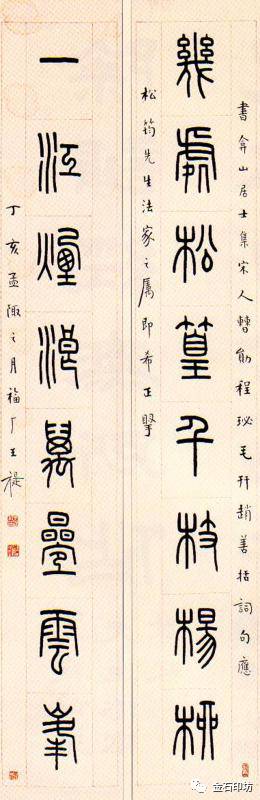 書弇山居士集宋人曹勛程珌毛幵趙善括詞句應
幾處松篁千枝楊柳
松筠先生法家之屬即希正掔
一江煙浪萬疊雲峯
丁亥孟陬之月福厂王禔
金石印坊